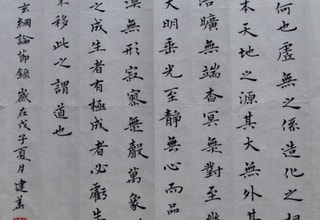 何也虛無之係造化之根
本天地之源其大無外其
浩曠無端杳冥無對至
大明乘光至靜無心而品
漠無形寂寥無聲萬象
之成生者有極成者必虧生
不移此之謂道也
玄綱論節錄 歲在戊子夏月建華